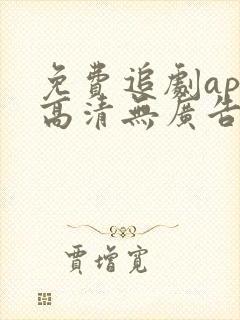 免費追劇ap
高清無廣告
賈增寬